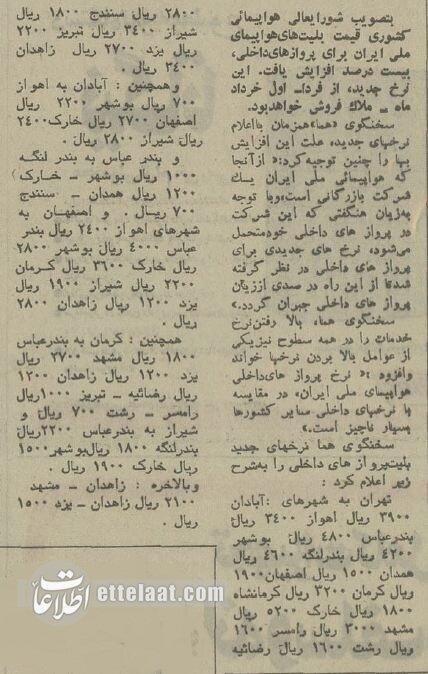 بتصویب شورایعالی هواپیمائی
کشوری قیمت بلیت‌های‌هواپیمای
ملی ایران برای پروازهای‌داخلی،
بیست درصد افزایش یافت. این
نرخ جدید، از فردا ـ اول خرداد
ماه ـ ملاک فروش خواهدبود.
سخنگوی «هما»همزمان بااعلام
نرخهای جدید، علت این افزایش
بها را چنین توجیه‌کرد:« ازآنجا
که هواپیمائی ملی ایران یک
شرکت بازرگانی است،وبا توجه
به‌زیان هنگفتی که این شرکت
در پرواز های داخلی خودمتحمل
می‌شود، نرخ های جدیدی برای
پرواز های داخلی در نظر گرفته
شدتا از این راه در صدی اززیان
پرواز های داخلی جبران گردد.»
سخنگوی هما، بالا رفتن‌نرخ
خدمات را در همه سطوح نیزیکی
از عوامل بالا بردن نرخها خواند
وافزود :« نرخ پرواز های‌داخلی
هواپیمای ملی ایران، در مقایسه
با نرخهای داخلی سایر کشورها
بسیار ناچیز است.»
سخنگوی هما نرخهای جدید
بلیت‌پرواز های داخلی را به‌شرح
زیر اعلام کرد :
تهران به شهرهای :آبادان
۳۹۰۰ ریال اهواز ۳۴۰۰ ریال
بندرعباس ۴۸۰۰ ریال بوشهر
۴۲۰۰ ریال بندرلنگه ۴۶۰۰ ریال
همدان ۱۵۰۰ ریال اصفهان۱۹۰۰
ریال کرمان ۳۲۰۰ ریال کرمانشاه
۱۸۰۰ ریال خارک ۵۲۰۰ ریال
مشهد ۳۰۰۰ ریال رامسر ۱۶۰۰
ریال رشت ۱۶۰۰ ریال رضائیه
۲۸۰۰ ریال سنندج ۱۸۰۰ ریال
شیراز ۳۴۰۰ ریال تبریز ۲۲۰۰
ریال یزد ۲۷۰۰ ریال زاهدان
۳۴۰۰ ریال .
وهمچنین : آبادان به اهواز
۷۰۰ ریال بوشهر ۲۲۰۰ ریال
اصفهان ۲۷۰۰ ریال خارک۲۴۰۰
ریال شیراز ۲۸۰۰ ریال .
و بندر عباس به بندر لنگه
۱۰۰۰ ریال بوشهر ـ خـارک
۱۲۰۰ ریال همدان ـ سنندج
۷۰۰ ریال . و اصفهـان به
شهرهای اهواز ۲۴۰۰ ریال بندر
عباس ۴۰۰۰ ریال بوشهر ۲۸۰۰
ریال خارک ۳۶۰۰ ریال کرمان
۲۲۰۰ ریال شیراز ۱۹۰۰ ریال
یزد ۱۲۰۰ ریال زاهدان ۲۸۰۰
ریال .
همچنین : کرمان به بندرعباس
۱۸۰۰ ریال مشهد ۳۷۰۰ ریال
یزد ۱۲۰۰ ریال زاهدان ۱۳۰۰
ریال رضائیه ـ تبریز ۱۰۰۰ریال
رامسر ـ رشت ۷۰۰ ریال و
شیراز به بندرعباس ۲۲۰۰ریال
بندرلنگه ۱۸۰۰ ریال‌بوشهر۱۵۰۰
ریال خارک ۱۹۰۰ ریال .
وبالاخره : زاهدان ـ مشهد
۲۱۰۰ ریال زاهدان ـ یزد ۱۵۰۰
ریال .
اطلاعات ettelaat.com